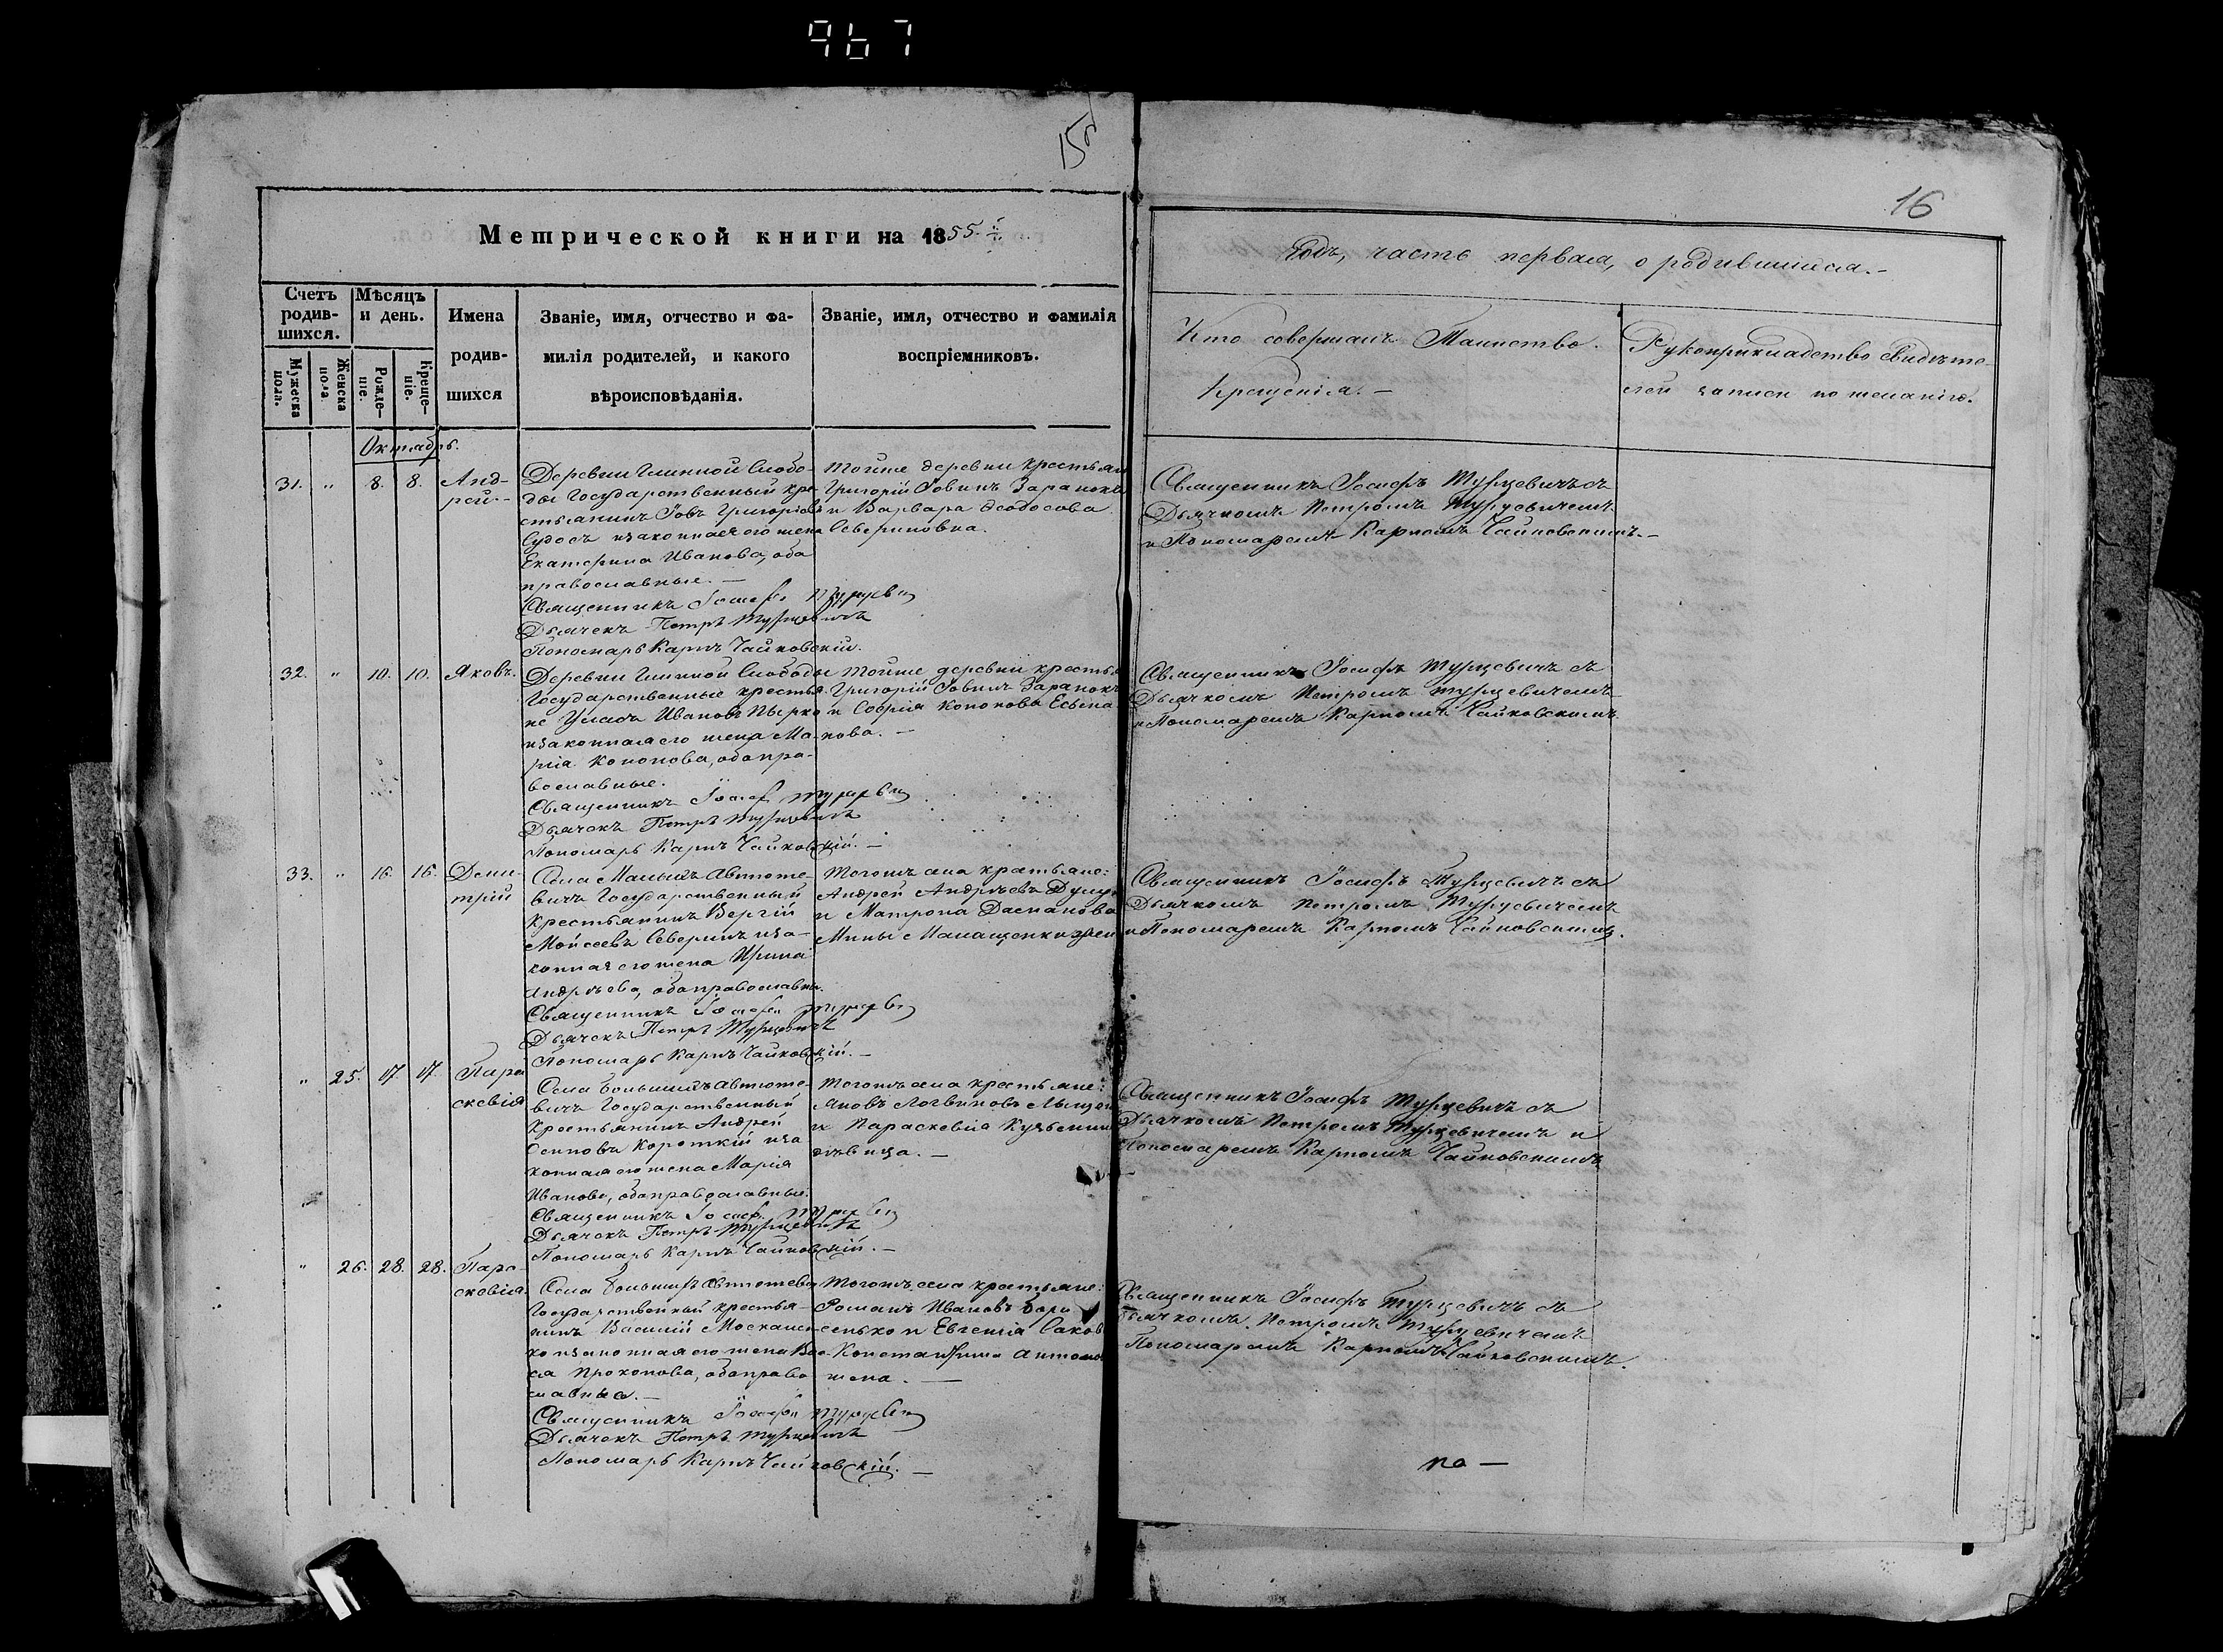 967
15
16
Метрической книги на 1855 й
Годъ, часть первая, о родившихся.-
Счетъ родив-шихся.
Мужеска пола.
Женска пола.
Мѣсяцъ и день.
Рожде-ніе.
Креще-ніе.
Имена
родив-
шихся
Званіе, имя, отчество и фа-
милія родителей, и какого
вѣроисповѣданія.
Званіе, имя, отчество и фамилія
воспріемниковъ.
Кто совершалъ Таинство
Крещенія.-
Рукоприкладство свидѣте-
лей записи по желанію.
Октябрь.
31. " 8. 8. Анд-
рей.-
Деревни Глинной Слобо-
ды Государственный кре-
стьянинъ Іовъ Григоріевъ
изаконная его жена
Екатерина Иванова, оба
православные.-
Священникъ Іосифъ Турцевич
Дьячекъ Петръ Турцевичъ
Пономарь Карпъ Чайковскій.
Тойже деревни крестьян
Григорій Іовинъ Заранокъ
и Варвара Ѳеодосова
Севериновна.
Священникъ Іосифъ Турцевичъ съ
Дьячкомъ Петромъ Турцевичемъ
и Пономаремъ Карпомъ Чайковскимъ.-
32. " 10. 10. Яковъ.
Деревни Глинной Слободы
Государственные крестья-
не Іванов Пырко
изаконная его жена Ма-
рія Кононова, оба пра-
вославные.
Священникъ Іосиф Турцевич
Дьячекъ Петръ Турцевичъ
Пономарь Карпъ Чайковскій.-
Тойже деревни крестья
Григорій Іовинъ Заранокъ
и Софія Кононова
нова.-
Священникъ Іосифъ Турцевичъ съ
Дьячкомъ Петромъ Турцевичемъ
и Пономаремъ Карпомъ Чайковскимъ
33. " 16. 16. Дими-
трій
Села Малыхъ Автюте-
вичъ Государственный
крестьянинъ Сергій
Моисеевъ Северинъ иза-
конная его жена Ирина
Андрѣева, оба православн.
Священникъ Іосифъ Турцевич
Дьячекъ Петръ Турцевичъ
Пономарь Карпъ Чайковскій.-
Тогожъ села крестьяне:
Андрей Андрѣевъ
и Матрона
Мины Манащенки жен
Священникъ Іосифъ Турцевичъ съ
Дьячкомъ Петромъ Турцевичемъ
и Пономаремъ Карпомъ Чайковскимъ.
" 25. 17. 17. Пара
скевія
Села Большихъ Автюте-
вичъ Государственный
крестьянинъ Андрей
Осиповъ Короткій иза
конная его жена Марія
Иванова, оба православные.
Священникъ Іосиф Турцевич
Дьячекъ Петръ Турцевичъ
Пономарь Карпъ Чайковскій.-
Тогожъ села крестьяне:
Яковъ Логвиновъ
и Параскевія
дѣвица.-
Священникъ Іосифъ Турцевичъ съ
Дьячкомъ Петромъ Турцевичемъ и
Пономаремъ Карпомъ Чайковскимъ
" 26. 28. 28. Пара-
скевія.
Села Большихъ Автютеви
Государственный крестья-
нинъ Василій Москален
ко изаконная его жена Ва-
са Прокопова, оба право
славные.-
Священникъ Іосифъ Турцевич
Дьячекъ Петръ Турцевичъ
Пономарь Карпъ Чайковскій.-
Тогожъ села крестьяне:
Романъ Ивановъ Бори
сенько и Евгенія
Константина Антонов
жена.-
Священникъ Іосифъ Турцевичъ съ
Дьячкомъ Петромъ Турцевичемъ
Пономаремъ Карпомъ Чайковскимъ.
по-